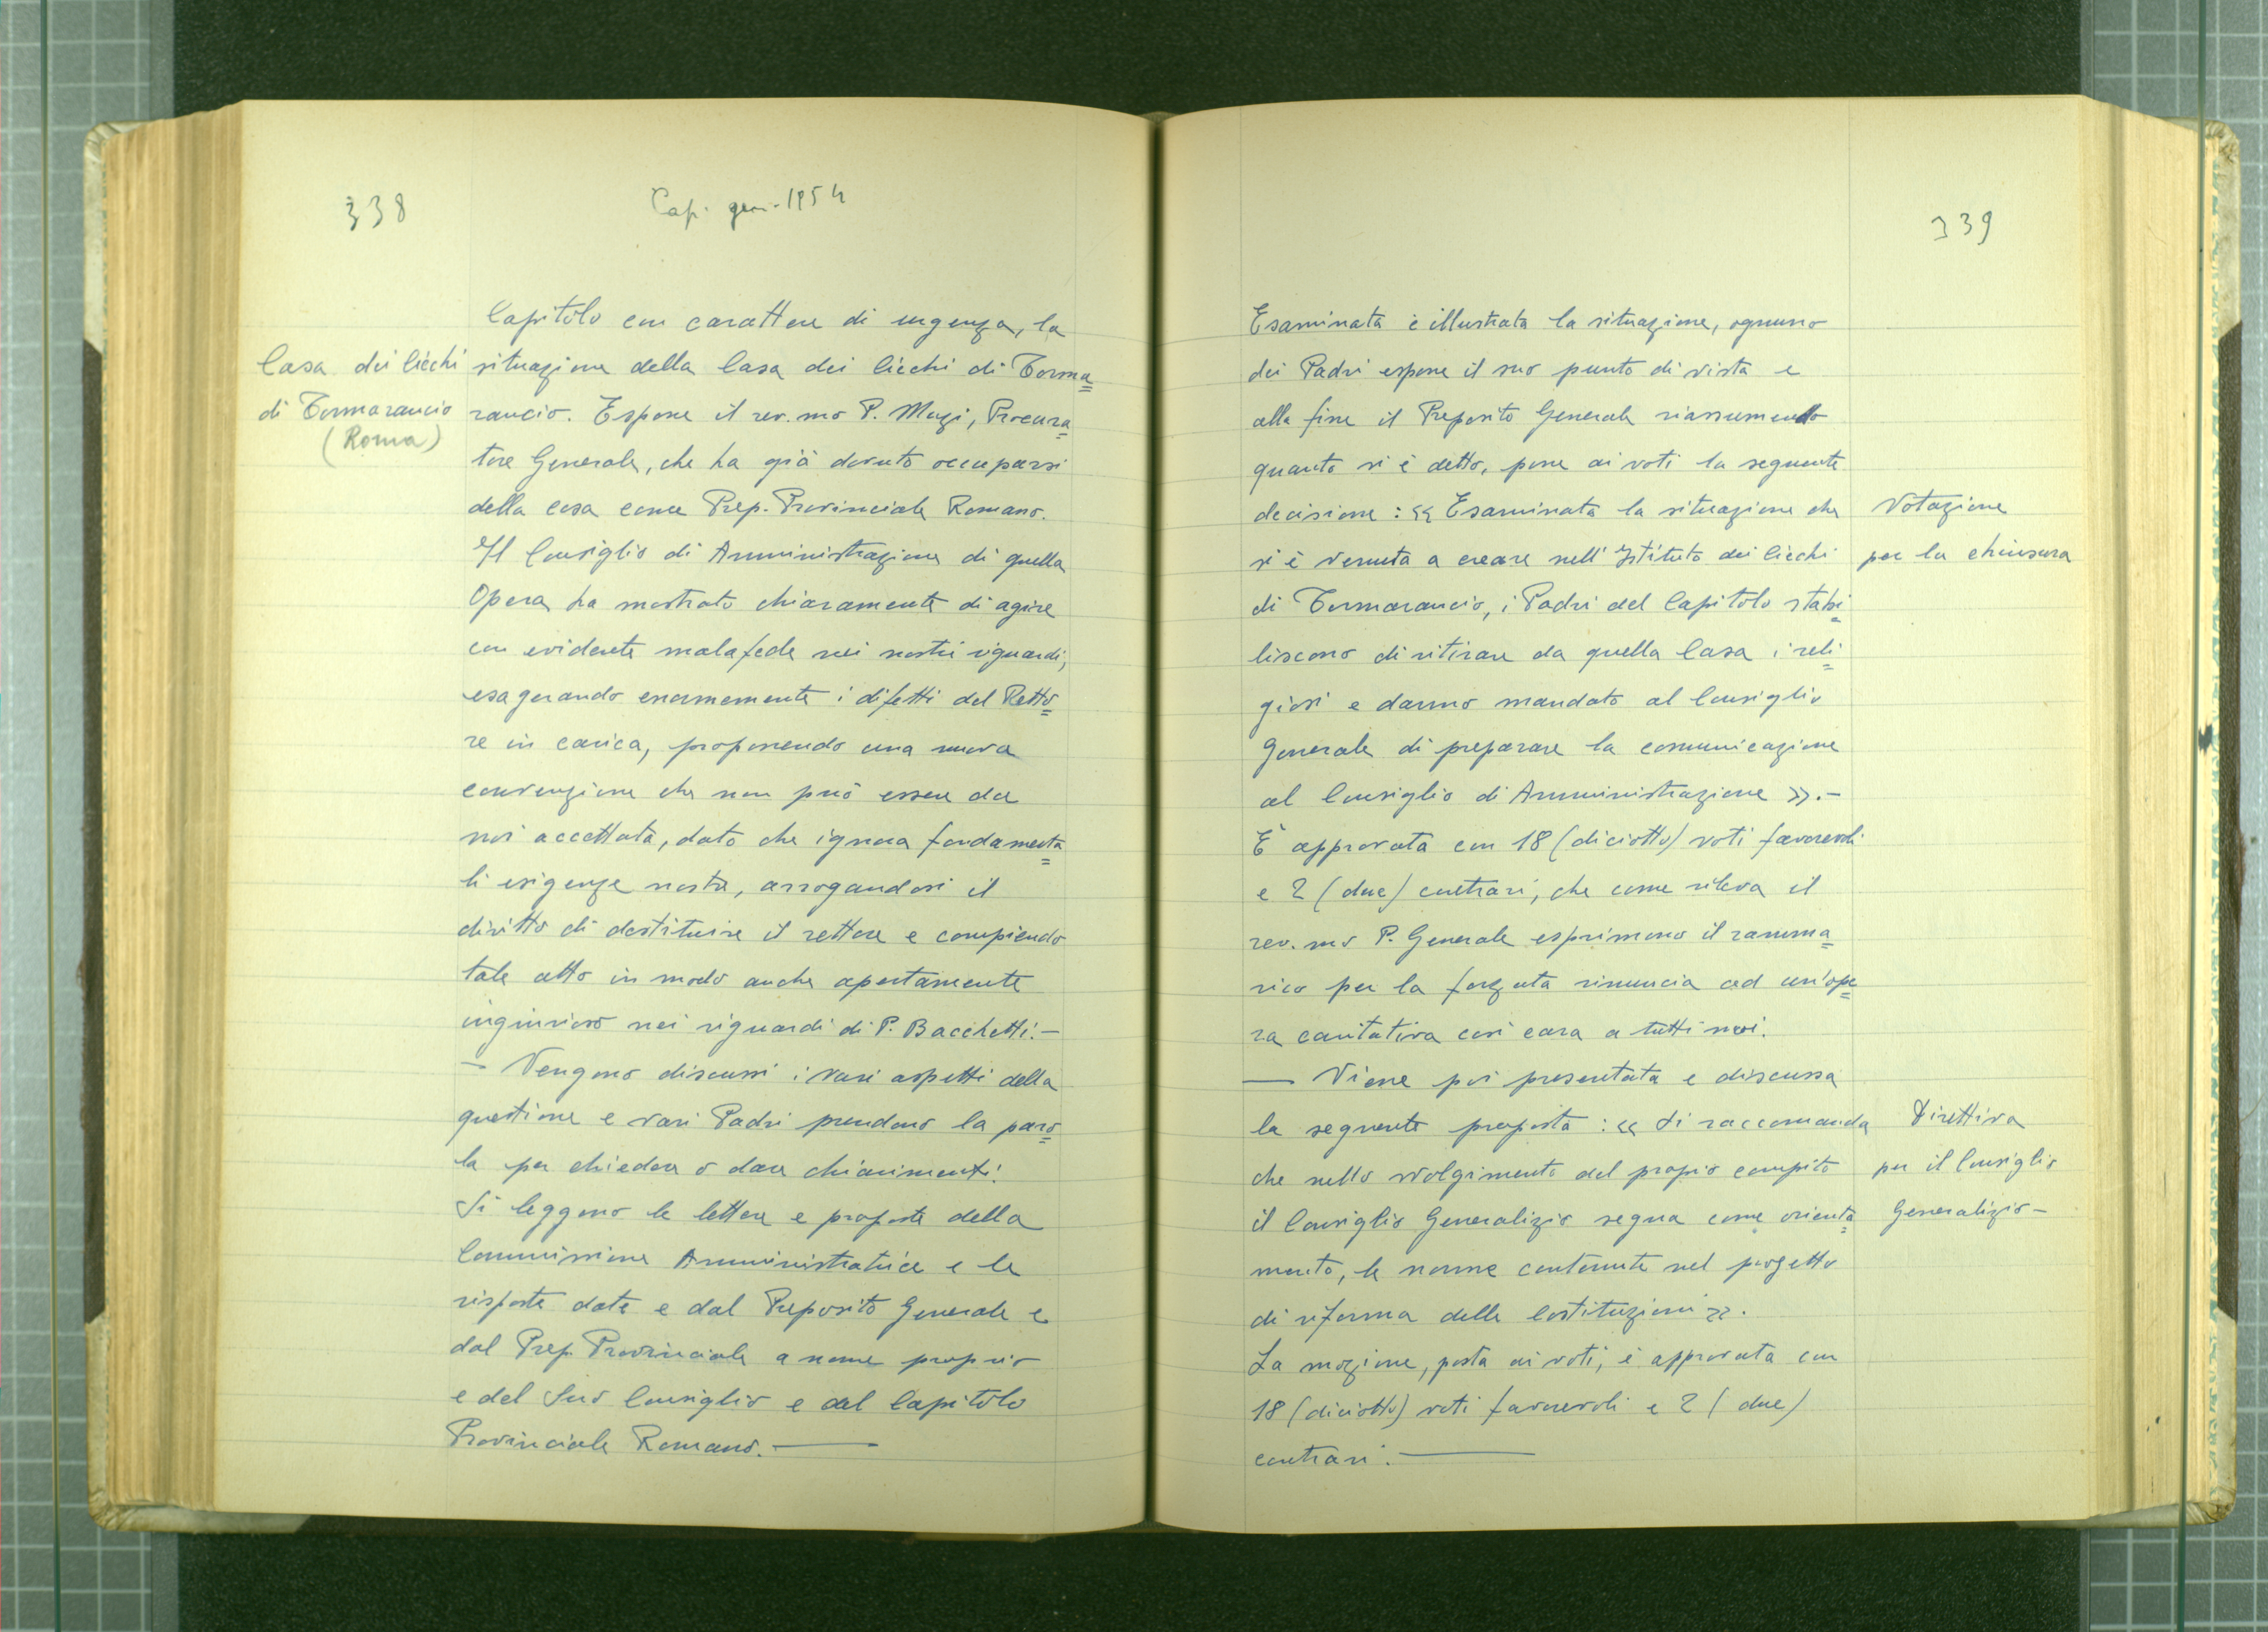 338
Cap. gen. 1954
Capitolo con carattere di urgenza, la
Casa dei Ciechi
situazione della Casa dei Ciechi di Torma=
di Tormarancio
(Roma)
rancio. Espone il rev.mo P. Muzi, Procura=
tore Generale, che ha già dovuto occuparsi
della cosa come Prep. Provinciale Romano.
Il Consiglio di Amministrazione di quella
Opera ha mostrato chiaramente di agire
con evidente malafede nei nostri riguardi,
esagerando enormemente i difetti del Retto=
re in carica, proponendo una nuova
convenzione che non può essere da
noi accettata, dato che ignora fondamenta=
li esigenze nostre, arrogandosi il
diritto di destituire il rettore e compiendo
tale atto in modo anche apertamente
ingiurioso nei riguardi di P. Bacchetti.-
- Vengono discussi i vari aspetti della
questione e vari Padri prendono la paro=
la per chiedere o dare chiarimenti.
Si leggono le lettere e proposte della
Commissione Amministratrice e le
risposte date e dal Preposito Generale e
dal Prep. Provinciale a nome proprio
e del Suo Consiglio e del Capitolo
Provinciale Romano. —
339
Esaminata e illustrata la situazione, ognuno
dei Padri espone il suo punto di vista e
alla fine il Preposito Generale riassumendo
quanto si è detto, pone ai voti la seguente
decisione: << Esaminata la situazione che
Votazione
si è venuta a creare nell'Istituto dei Ciechi
per la chiusura
di Tormarancio, i Padri del Capitolo stabi=
liscono di ritirare da quella Casa i reli=
giosi e danno mandato al Consiglio
Generale di preparare la comunicazione
al Consiglio di Amministrazione >>.-
È approvata con 18 (diciotto) voti favorevoli
e 2 (due) contrari, che come rileva il
rev.mo P. Generale esprimono il ramma=
rico per la forzata rinuncia ad un'ope=
ra caritativa così cara a tutti noi.
— Viene poi presentata e discussa
la seguente proposta: << Si raccomanda
Direttiva
che nello svolgimento del proprio compito
per il Consiglio
il Consiglio Generalizio segua come orienta=
Generalizio-
mento, le norme contenute nel progetto
di riforma delle Costituzioni >>.
La mozione, posta ai voti, è approvata con
18 (diciotto) voti favorevoli e 2 (due)
contrari. —